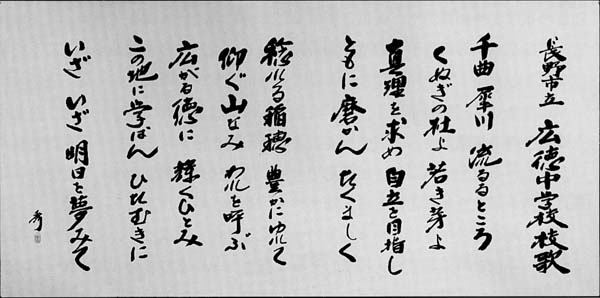 長野市立 広徳中学校校歌
千曲 犀川 流るるところ
くぬぎの杜よ 若き芽よ
真理を求め 自立を目指し
ともに磨かん たくましく
稔れる稲穂 豊かにゆれて
仰ぐ山なみ われを呼ぶ
広がる徳に 輝くひとみ
この地に学ばん ひたむきに
いざ いざ 明日を夢みて